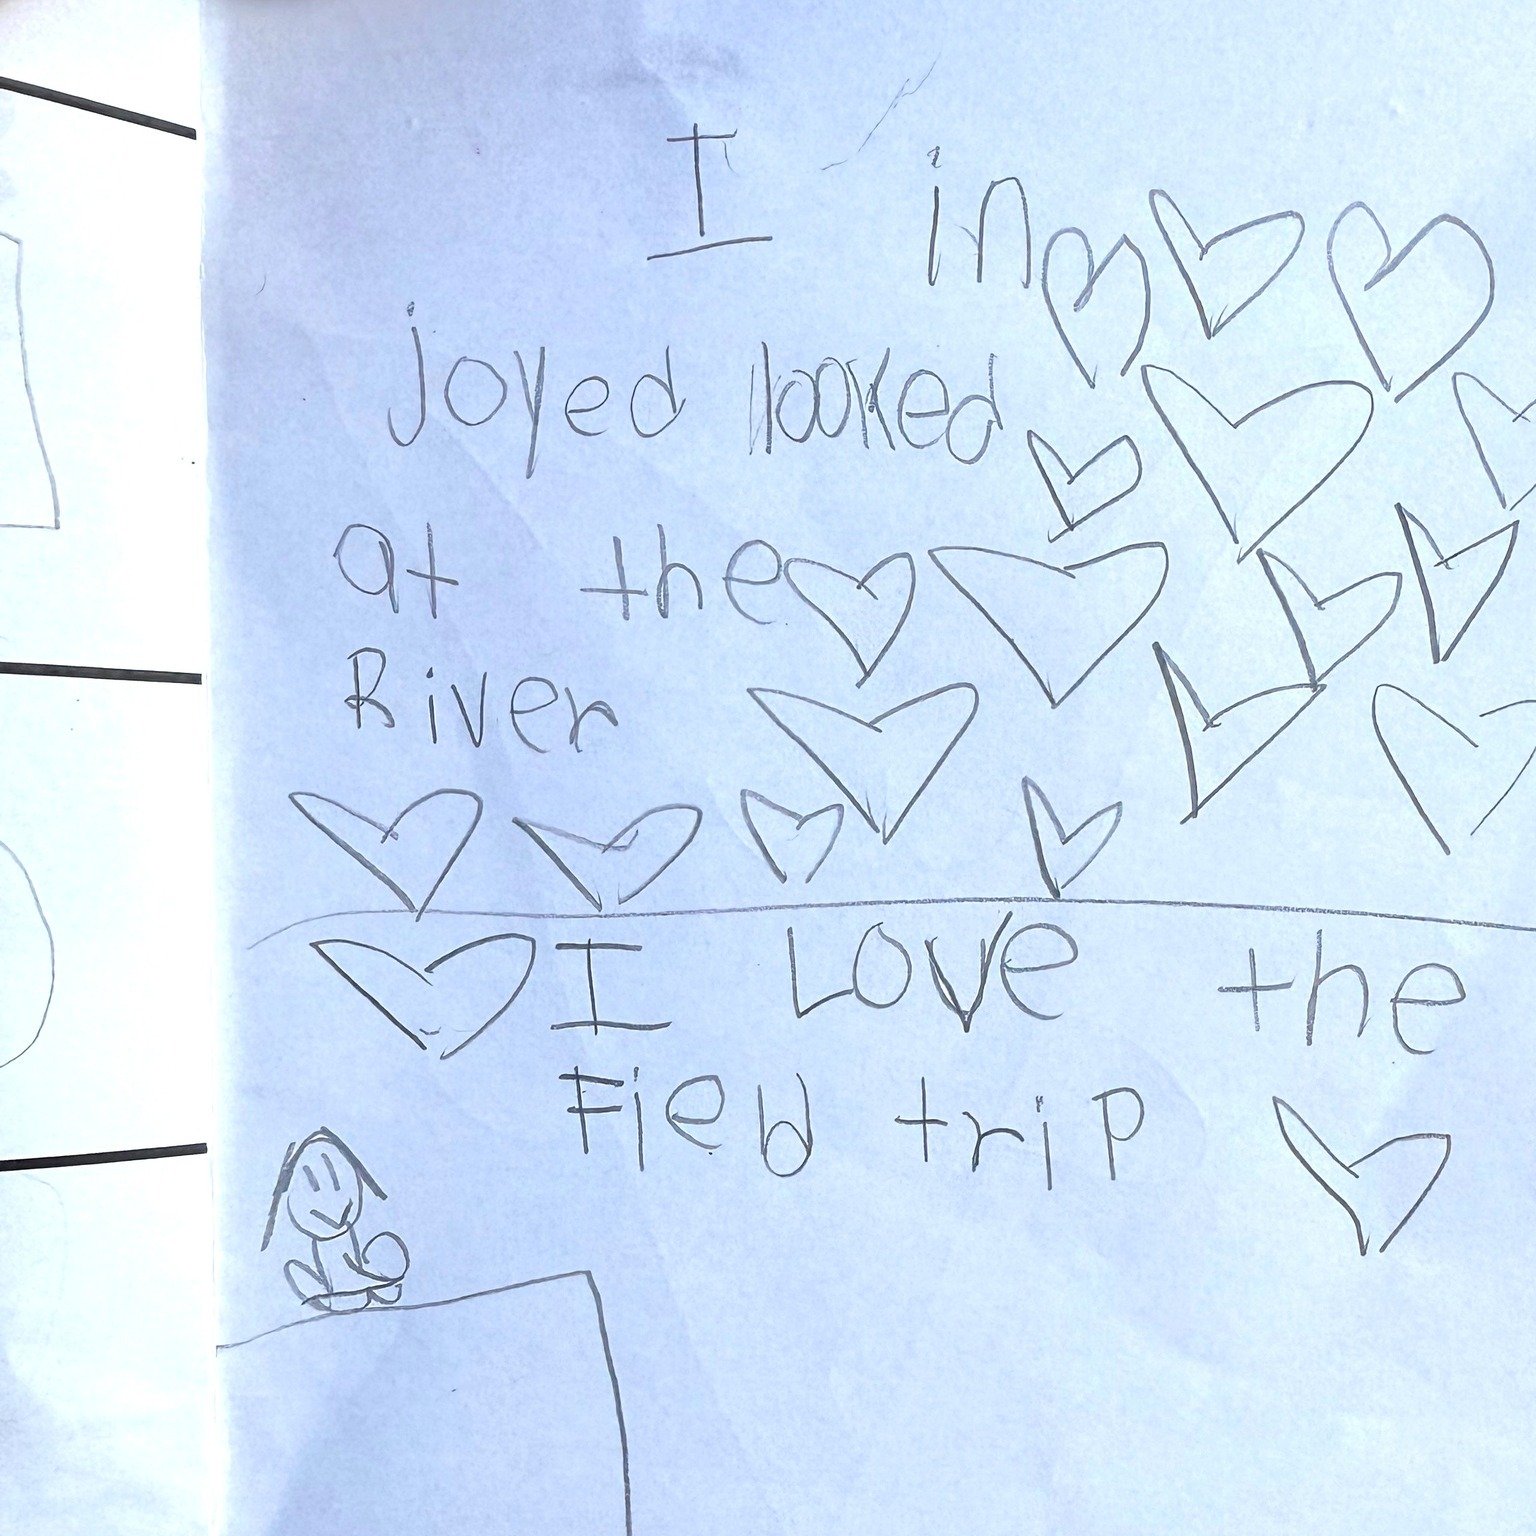 I in
joyed looked
at the
River
I Love the
Field trip